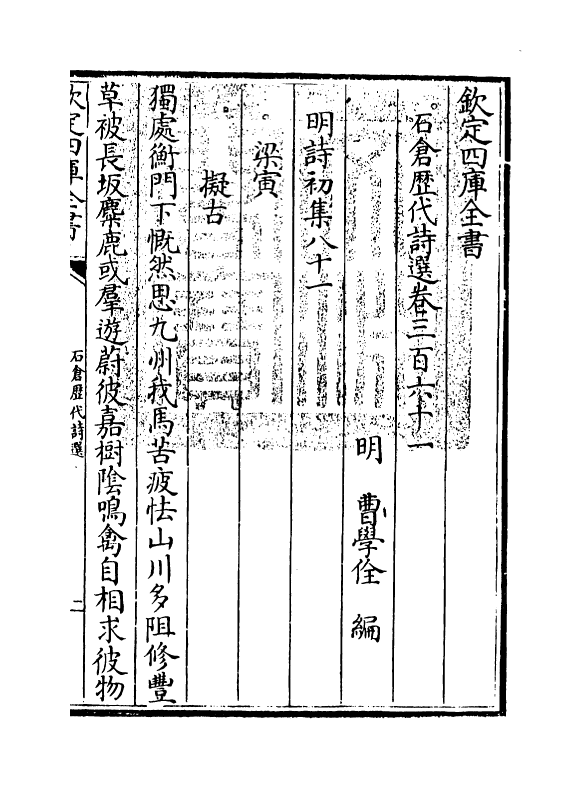 欽定四庫全書
石倉歴代詩選卷三百六十一
明　曹學佺　編
明詩初集八十一
梁寅
擬古
獨處衡門下慨然思九州我馬苦疲怯山川多阻修豐
草被長坂麋鹿或羣遊蔚彼嘉樹陰鳴禽自相求彼物
欽定四庫全書
石倉歴代詩選
二